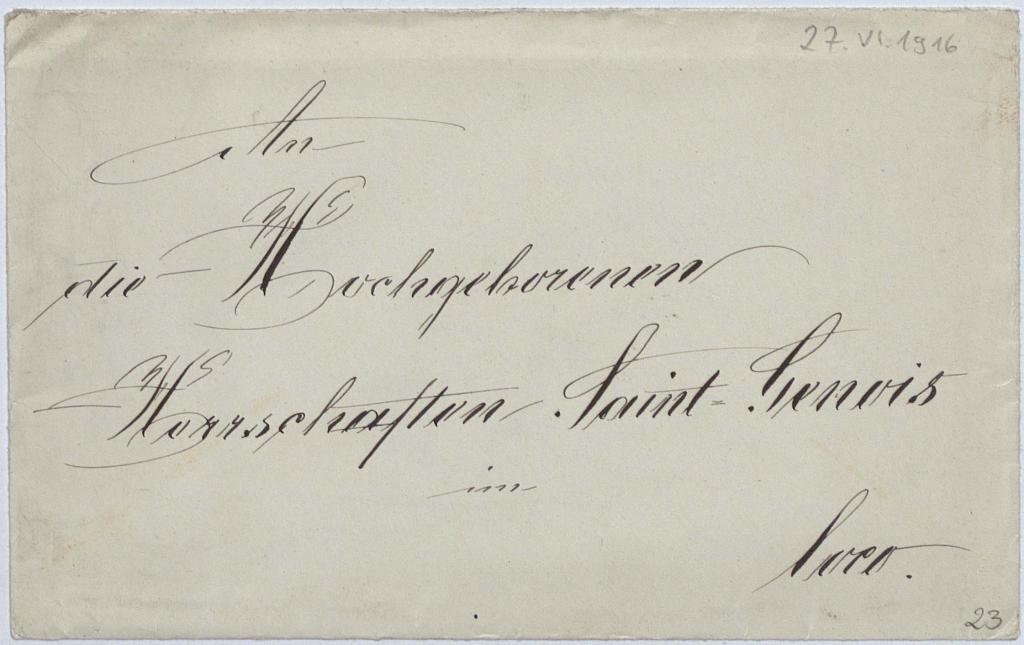 27. VI. 1916
An
die Hochgeborenen
Herrschaften Saint-Genois
im
loco.
23